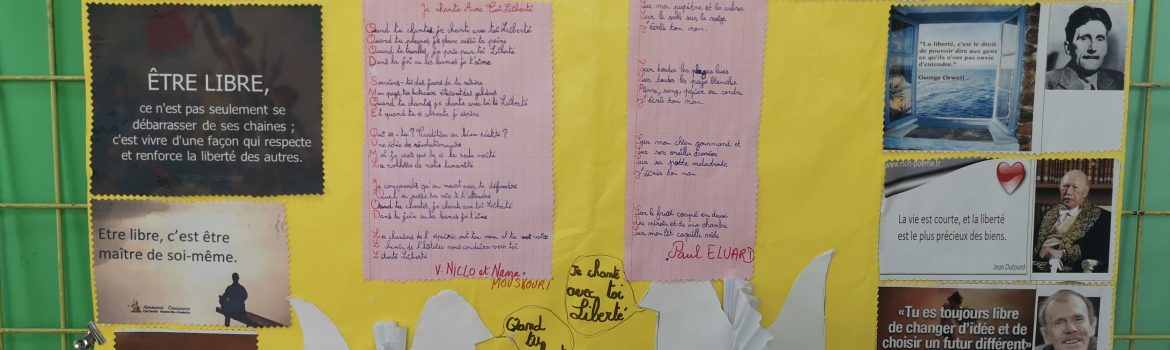 ÊTRE LIBRE,
ce n'est pas seulement se
débarrasser de ses chaines ;
c'est vivre d'une façon qui respecte
et renforce la liberté des autres.
Nelson Mandela
Etre libre, c'est être
maître de soi-même.
Je chante Avec Toi Liberté
Quand tu chantes, je chante avec toi Liberté
Quand tu pleures, je pleure aussi ta peine
Quand tu trembles, je prie pour toi Liberté
Dans la joie ou les larmes je t'aime
Souviens-toi des jours de ta misère
Mon pays tes bateaux étaient des galères
Quand tu chantes, je chante avec toi Liberté
Et quand tu es absente j'espère
Qui es-tu ? Tradition ou bien réalité ?
Une idée de révolutionnaire
Moi je crois que tu es la seule vérité
La noblesse de notre humanité
Je comprends qu'on meurt pour te défendre
Que l'on passe sa vie à t'attendre
Quand tu chantes, je chante avec toi Liberté
Dans la joie ou les larmes je t'aime
Les chansons de l'espoir ont ton nom et ta voix
Le chemin de l'histoire nous conduira vers toi
Liberté Liberté
V. NICLO et Nana
MOUSKOURI
Sur mon pupitre et les arbres
Sur le sable sur la neige
J'écris ton nom.
Sur toutes les pages lues
Sur toutes les pages blanches
Pierre, sang, papier ou cendre
J'écris ton nom.
Sur mon chien gourmand et
Sur ses oreilles dressées
Sur sa patte maladroite
J'écris ton nom
Sur le fruit coupé en deux
Du miroir et de ma chambre
Sur mon lit coquille vide
Paul ELUARD
Je chante
avec toi
Liberté
Quand
tu
"La liberté, c'est le droit
de pouvoir dire aux gens
ce qu'ils n'ont pas envie
d'entendre."
George Orwell
www.mon-poeme.fr
La vie est courte, et la liberté
est le plus précieux des biens.
Jean Dutourd
«Tu es toujours libre
de changer d'idée et de
choisir un futur différent»